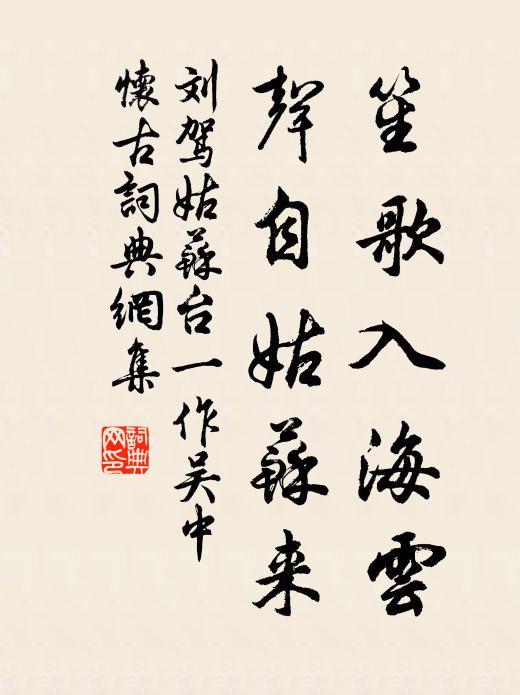 笙歌入海雲
聲自姑蘇来
刘駕姑蘇台一作吴中
懷古詞典網集
詞典
网印